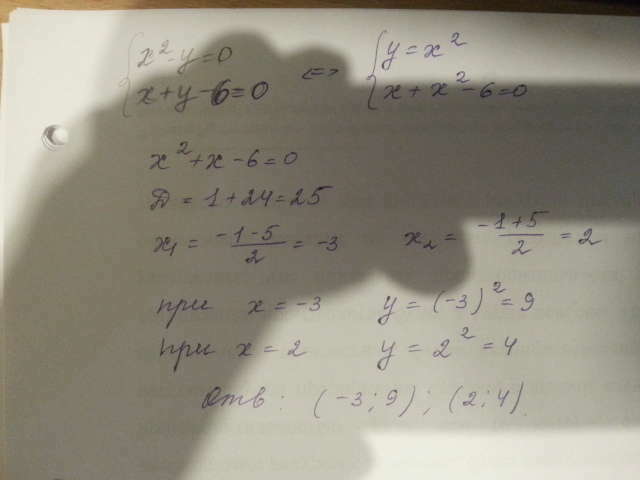 { x² - y = 0 <=> { y = x²
{ x + y - 6 = 0 { x + x² - 6 = 0
x² + x - 6 = 0
D = 1 + 24 = 25
x₁ = (-1-5)/2 = -3 x₂ = (-1+5)/2 = 2
при x = -3 y = (-3)² = 9
при x = 2 y = 2² = 4
Отв: (-3; 9); (2; 4)